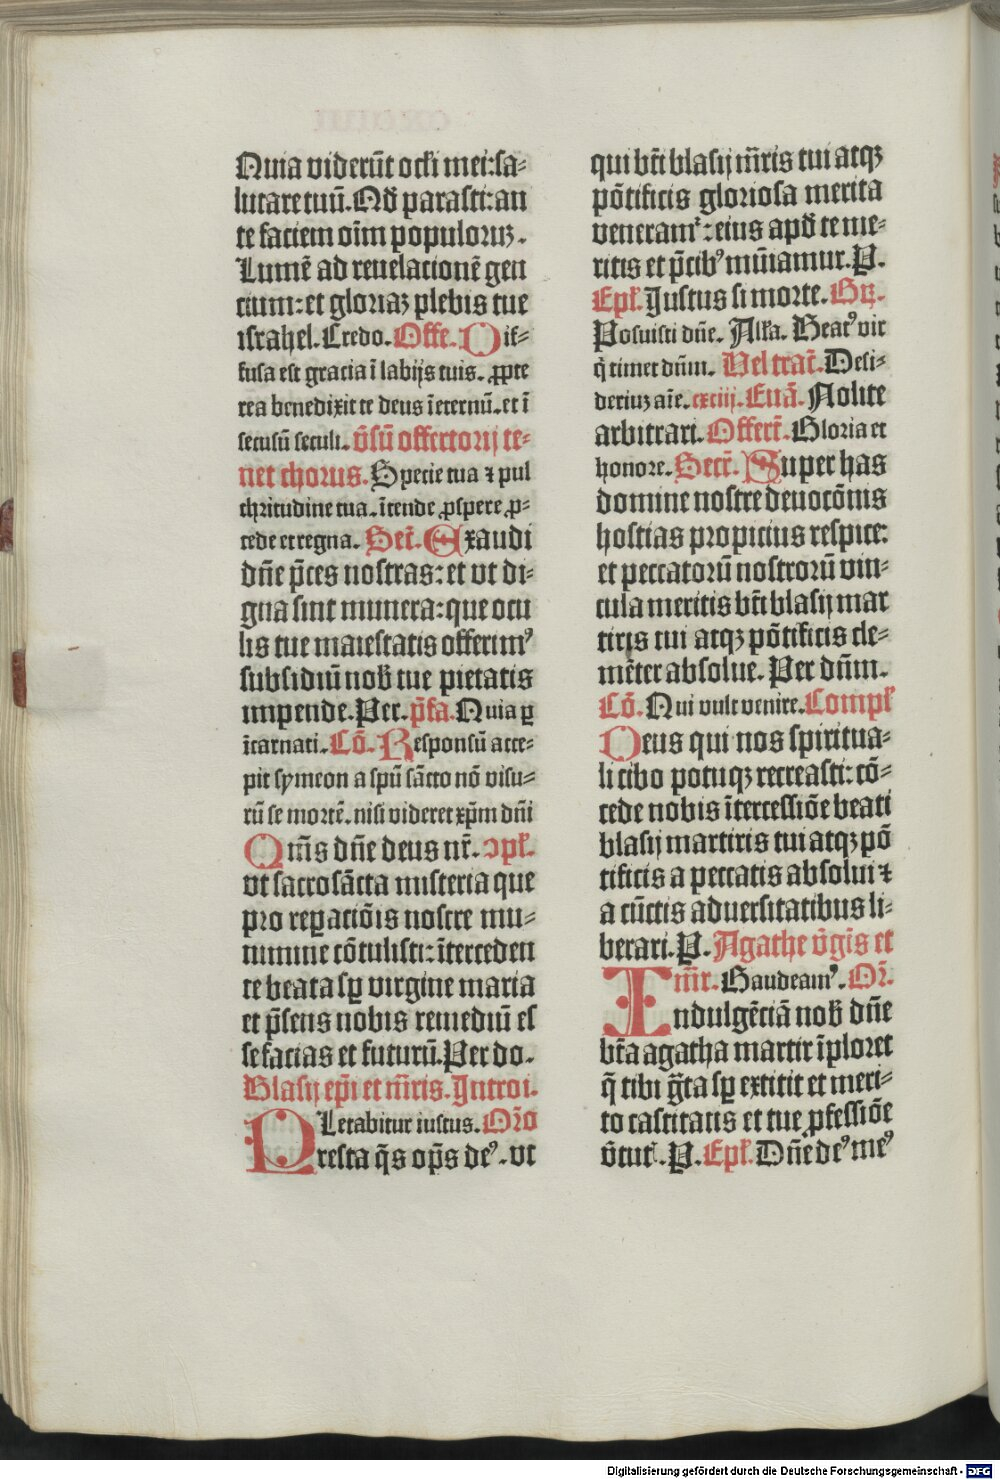 Quia viderūt oc̄li mei: sa⸗
lutare tuū. Qḋ parasti: an
te faciem oīm populoꝝ.
Lumē ad reuelacionē gen
cium: et gloriaꝫ plebis tue
israhel. Credo. Offe. Dif⸗
fusa est gracia ī labijs tuis. ꝓpte
rea benedixit te deus īeternū. et ī
seculū seculi. v̄sū offertorij te⸗
net chorus. Specie tua ⁊ pul
chritudine tua. ītende ꝓspere ꝓ⸗
cede et regna. Secr̄. Exaudi
dn̄e p̄ces nostras: et vt di⸗
gna sint munera: que ocu
lis tue maiestatis offerimꝰ
subsidiū nob̄ tue pietatis
impende. Per. p̄fa. Quia ꝑ
īcarnati. Cō. Responsū acce⸗
pit symeon a spū sācto nō visu⸗
rū se mortē. nisi videret xp̄m dn̄i
Qm̄s dn̄e deus nr̄. ↄpl̄.
vt sacrosācta misteria que
pro reꝑaciōis nostre mu⸗
nimine cōtulisti: īterceden
te beata sꝑ virgine maria
et p̄sens nobis remediū es
se facias et futurū. Per do.
Blasij ep̄i et m̄ris. Introi.
Letabitur iustus. Oro
Presta q̄s op̄s deꝰ. vt
qui bt̄i blasij m̄ris tui atqꝫ
pōtificis gloriosa merita
veneramͬ: eius apḋ te me⸗
ritis et p̄cibꝰ muniamur. P.
Epl̄. Iustus si morte. Gꝝ.
Posuisti dn̄e. Alla. Beatꝰ vir
q̄ timet dn̄m. Vel tract̄. Desi⸗
deriuꝫ aīe. cxciij. Euā. Nolite
arbitrari. Offert̄. Gloria et
honore. Secr̄. Super has
domine nostre deuocōnis
hostias propicius respice:
et peccatorū nostrorū vin⸗
cula meritis bt̄i blasij mar
tiris tui atqꝫ pōtificis cle⸗
mēter absolue. Per dn̄m.
Cō. Qui vult venire. Compl̄
Deus qui nos spiritua⸗
li cibo potuqꝫ recreasti: cō⸗
cede nobis ītercessiōe beati
blasij martiris tui atqꝫ pō
tificis a peccatis absolui ⁊
a cūctis aduersitatibus li⸗
berari. P. Agathe v̄gīs et
m̄r. Gaudeamꝰ. Or̄.
Indulgēciā nob̄ dn̄e
bt̄a agatha martir īploret
q̄ tibi g̅ta sꝑ extitit et meri⸗
to castitatis et tue ꝓfessiōe
v̄tutͭ. P. Epl̄. Dn̄e deꝰ meꝰ
Digitalisierung gefördert durch die Deutsche Forschungsgemeinschaft - DFG